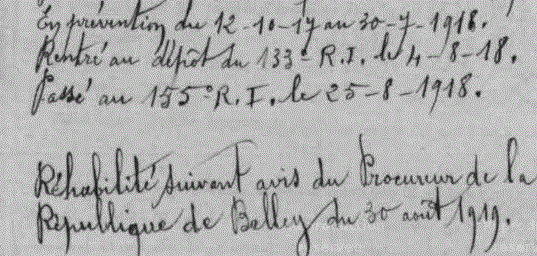 En prévention du 12-10-17 au 30-7-1918.
Rentré au dépôt du 133e R.I. le 4-8-18.
Passé au 155e R.I. le 25-8-1918.
Réhabilité suivant avis du Procureur de la
République de Belley du 30 août 1919.